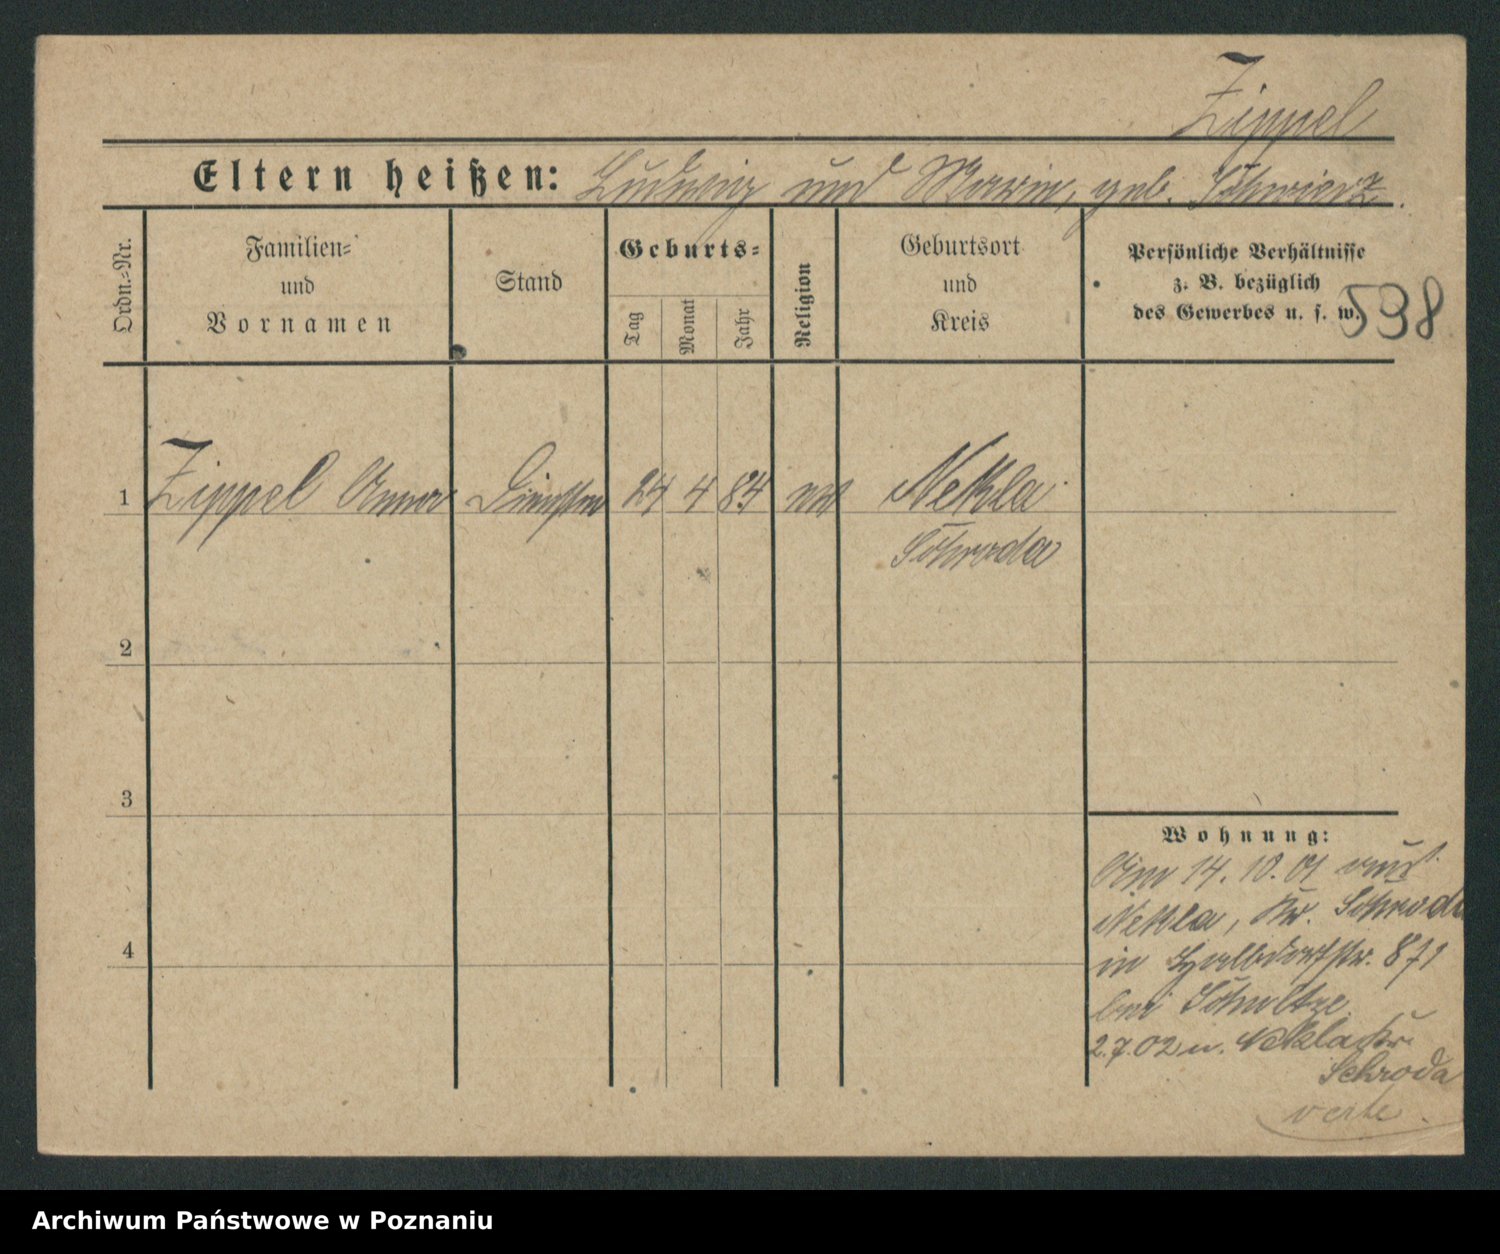 Zippel
Eltern heißen: Ludwig und Maria, geb. Schwierz.
Ordn.-Nr.
Familien-
und
Vornamen
Stand
Geburts-
Tag
Monat
Jahr
Religion
Geburtsort
und
Kreis
Persönliche Verhältnisse
z. B. bezüglich
des Gewerbes u. s. w.
538
1 Zippel Anna 24 4 84 Nekla
Schroda
2
3
4
Wohnung:
Am 14. 10. 01 aus
Nekla, Kr. Schroda
in Halbdorfstr. 871
bei Schultze
2.7.02 n. Nekla Kr.
Schroda
verte
Archiwum Państwowe w Poznaniu